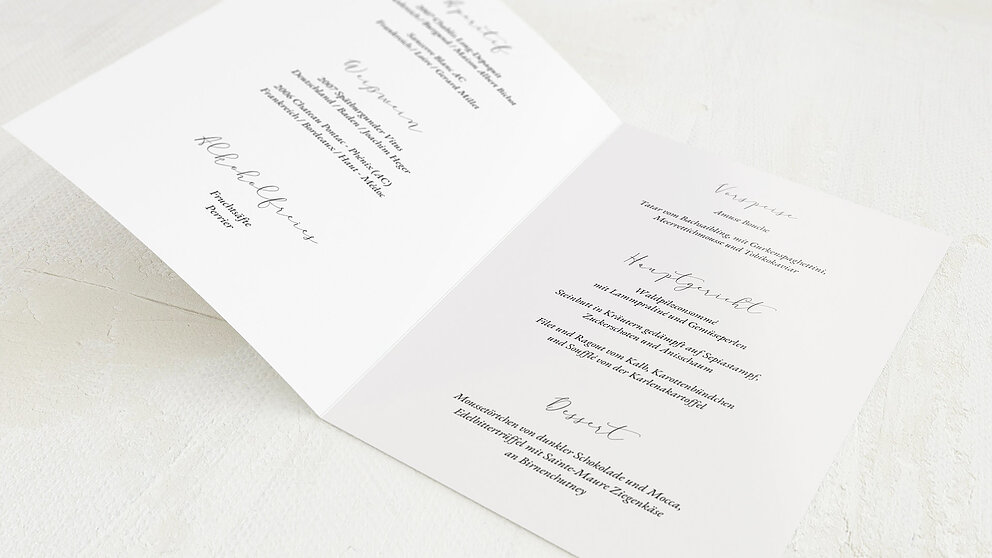 Aperitif
2007 Chablis Long-Depaquit
Frankreich / Burgund / Maison Albert Bichot
Sancerre Blanc AC
Frankreich / Loire / Gerard Millet
Weißwein
2007 Spätburgunder Vitus
Deutschland / Baden / Joachim Heger
2006 Chateau Pontac - Phénix (AC)
Frankreich / Bordeaux / Haut - Médoc
Alkoholfreies
Fruchtsäfte
Perrier
Vorspeise
Amuse Bouche
Tatar vom Bachsaibling, mit Gurkenspaghettini,
Meerrettichmousse und Tobikokaviar
Hauptgericht
Waldpilzconsommé
mit Lammpraliné und Gemüseperlen
Steinbutt in Kräutern gedämpft auf Sepiastampf,
Zuckerschoten und Anisschaum
Filet und Ragout vom Kalb, Karottenbündchen
und Soufflé von der Karlenakartoffel
Dessert
Moussetörtchen von dunkler Schokolade und Mocca,
Edelbittertrüffel mit Sainte-Maure Ziegenkäse
an Birnenchutney